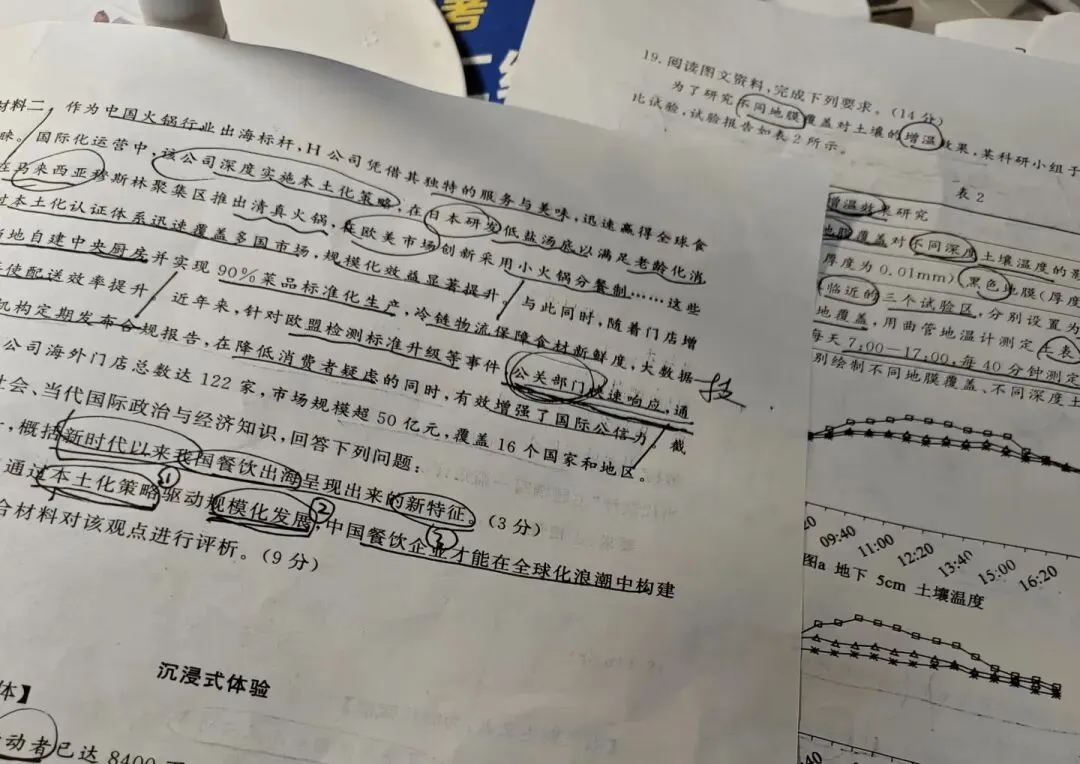 材料二 作为中国火锅行业出海标杆,H 公司凭借其独特的服务与美味,迅速赢得全球食
睐。国际化运营中,该公司深度实施本土化策略,在日本研发低盐汤底以满足老龄化消
在马来西亚穆斯林聚集区推出清真火锅,在欧美市场创新采用小火锅分餐制……这些
过本土化认证体系迅速覆盖多国市场,规模化效益显著提升。与此同时,随着门店增
当地自建中央厨房并实现 90%菜品标准化生产,冷链物流保障食材新鲜度,大数据
使配送效率提升。近年来,针对欧盟检测标准升级等事件,公关部门快速响应,通
机构定期发布合规报告,在降低消费者疑虑的同时,有效增强了国际公信力。截
公司海外门店总数达 122 家,市场规模超 50 亿元,覆盖 16 个国家和地区。
社会、当代国际政治与经济知识,回答下列问题:
,概括新时代以来我国餐饮出海呈现出来的新特征。(3 分)
通过本土化策略驱动规模化发展,中国餐饮企业才能在全球化浪潮中构建
合材料对该观点进行评析。(9 分)
① ② ③
技
沉浸式体验
体】
动者已达 8400
19. 阅读图文资料,完成下列要求。(14 分)
为了研究不同地膜覆盖对土壤的增温效果,某科研小组于
比试验,试验报告如表 2 所示。
表 2
增温效果研究
地膜覆盖对不同深度土壤温度的影
厚度为 0.01mm) 黑色地膜(厚度
临近的三个试验区,分别设置为
地覆盖,用曲管地温计测定
每天 7:00—17:00,每 40 分钟测定
别绘制不同地膜覆盖、不同深度土
09:40 11:00 12:20 13:40 15:00 16:20
图a 地下 5cm 土壤温度